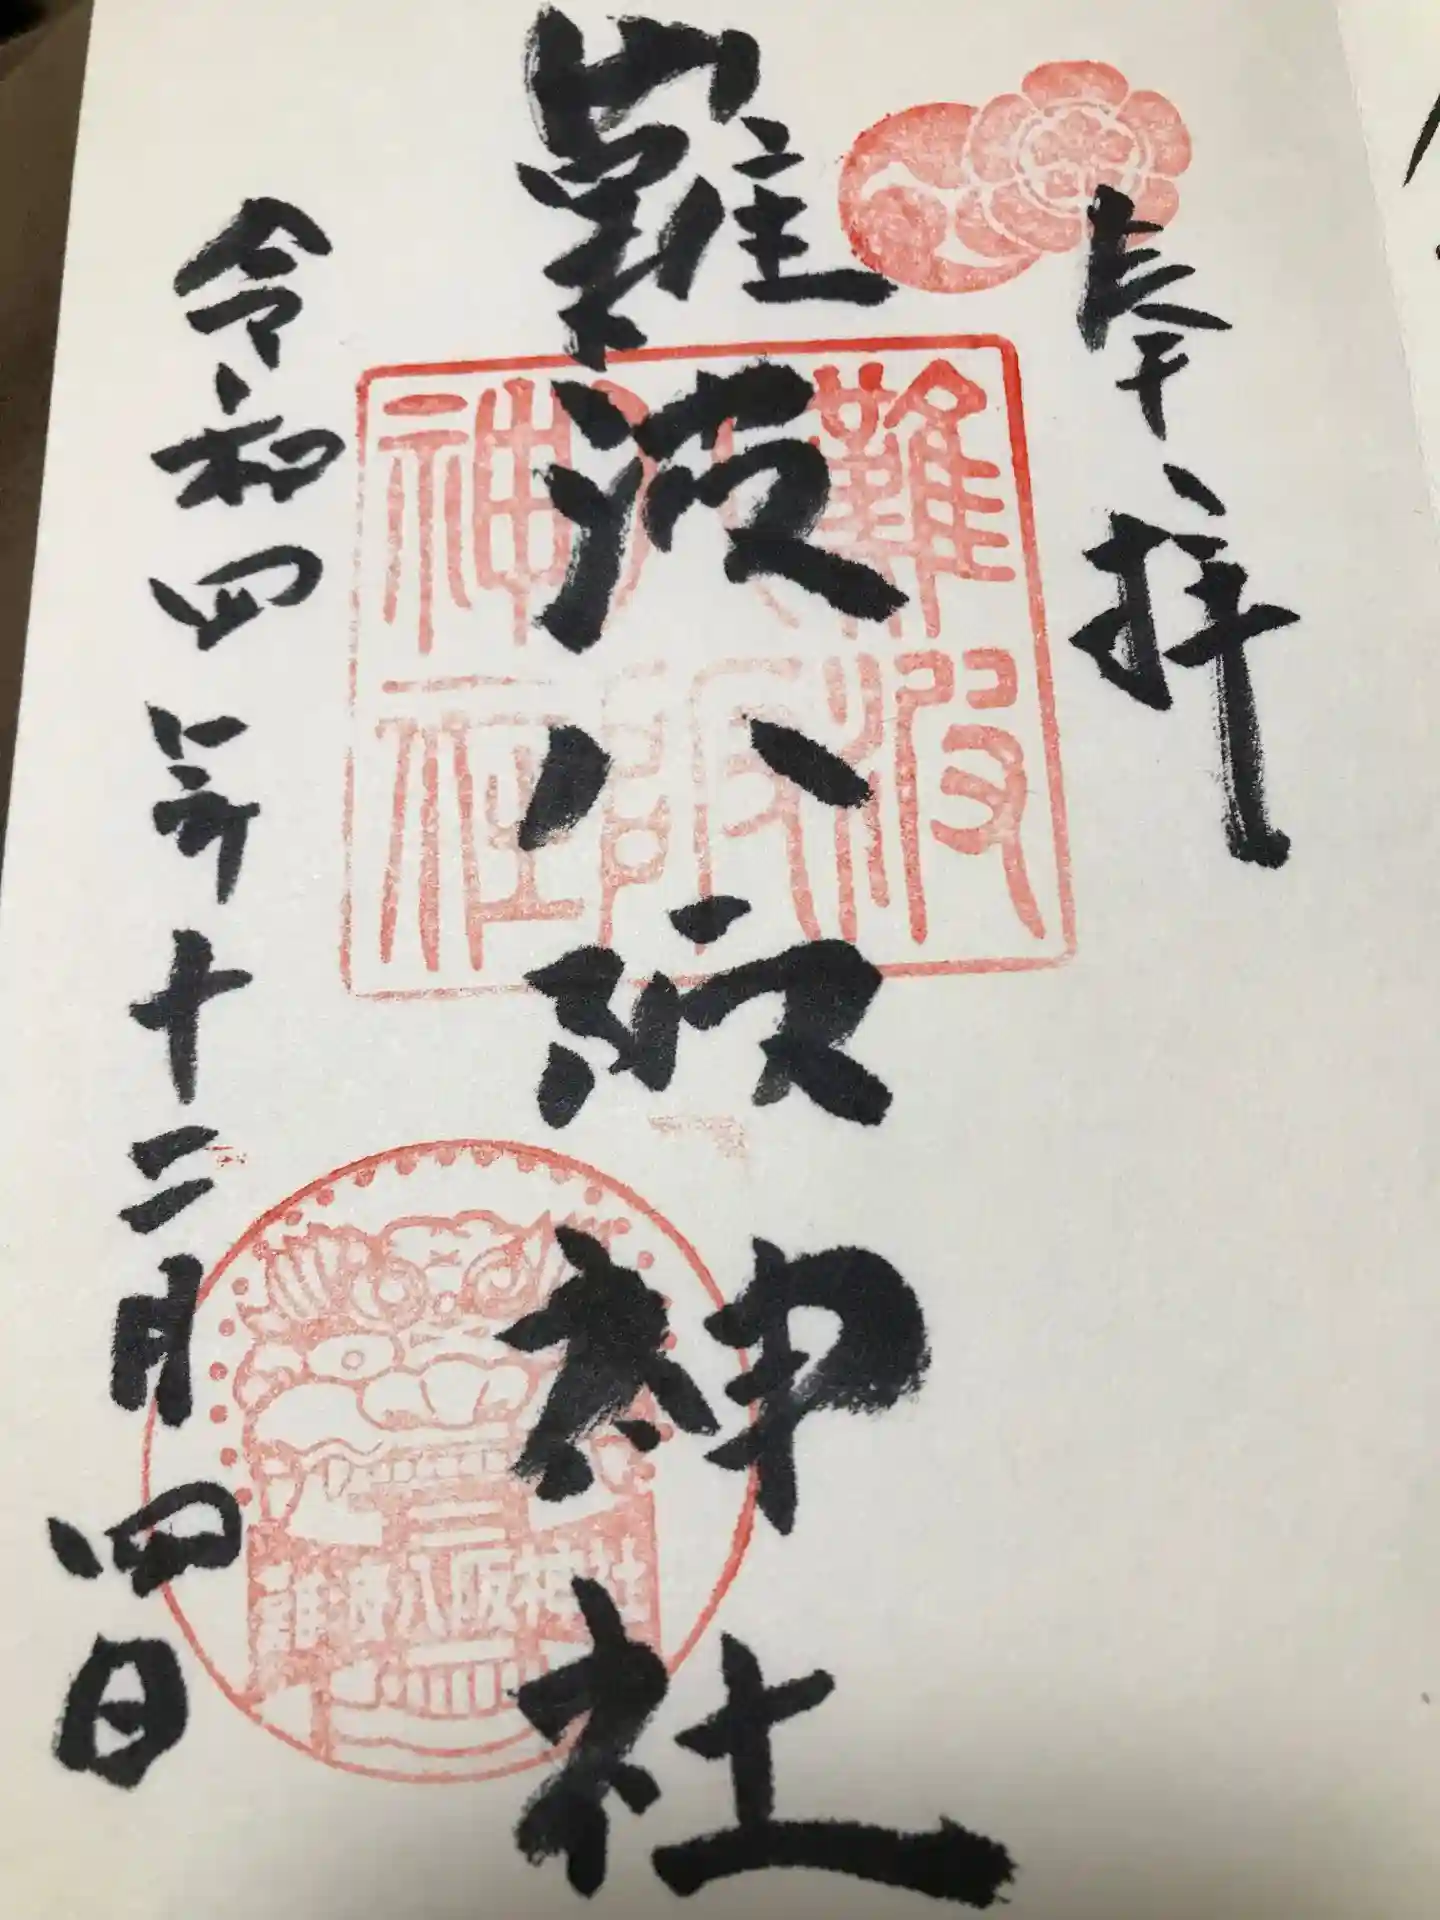 奉拝
難波八阪神社
令和四年十二月四日
難波
八阪
神社
難波八阪神社